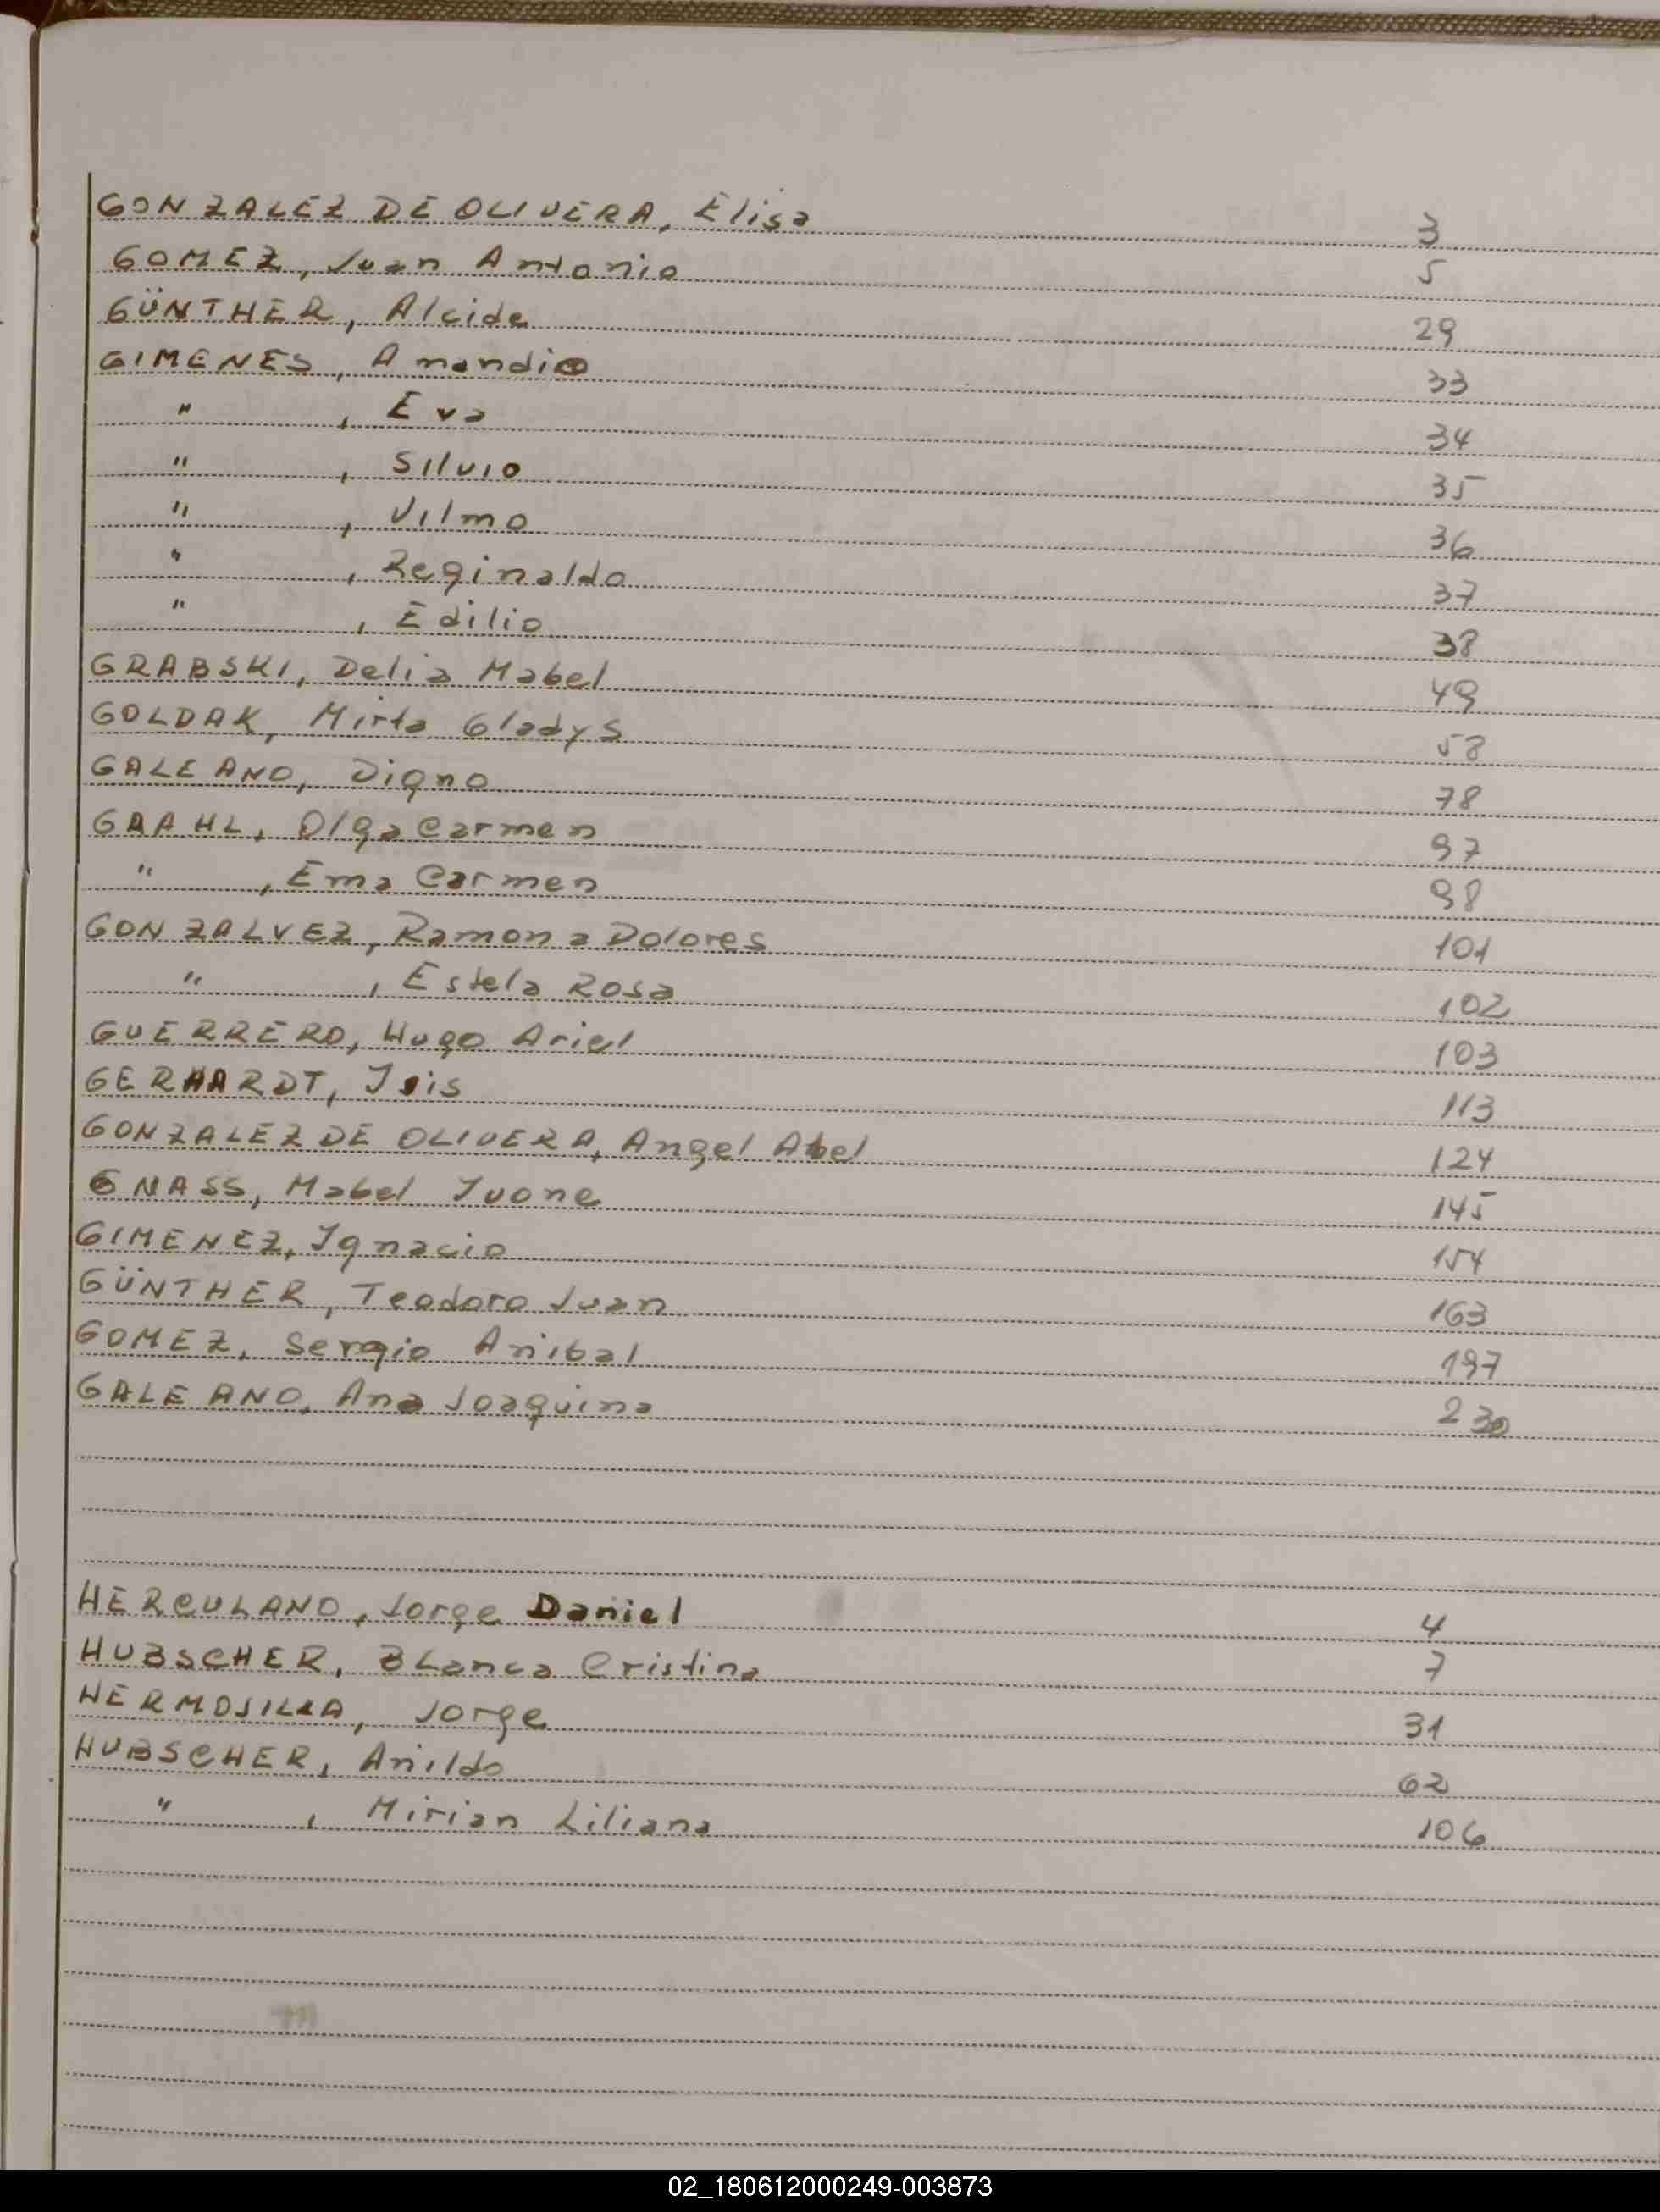 GONZALEZ DE OLIVERA, Elisa 3
GOMEZ, Juan Antonio 5
GÜNTHER, Alcide 29
GIMENES, Amandio 33
" , Eva 34
" , Silvio 35
" , Vilmo 36
" , Reginaldo 37
" , Edilio 38
GRABSKI, Delia Mabel 49
GOLDAK, Mirta Gladys 58
GALEANO, Digno 78
GRAHL, Olga Carmen 97
" , Ema Carmen 98
GONZALVEZ, Ramona Dolores 101
" , Estela Rosa 102
GUERRERO, Hugo Ariel 103
GERHARDT, Isis 113
GONZALEZ DE OLIVERA, Angel Abel 124
GNASS, Mabel Ivone 145
GIMENEZ, Ignacio 154
GÜNTHER, Teodoro Juan 163
GOMEZ, Sergio Anibal 197
GALEANO, Ana Joaquina 230
HERCULANO, Jorge Daniel 4
HUBSCHER, Blanca Cristina 7
HERMOSILLA, Jorge 31
HUBSCHER, Anildo 62
" , Mirian Liliana 106
02_180612000249-003873